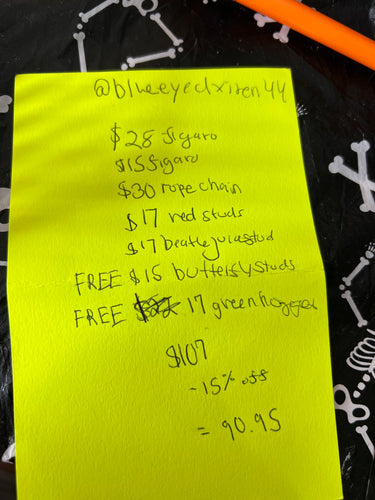 @blueeyedxiren44
$28 figaro
$15 figaro
$30 rope chain
$17 red studs
$17 beatlejuice stud
FREE $15 butterfly studs
FREE 17 green
$107
-15% off
= 90.95